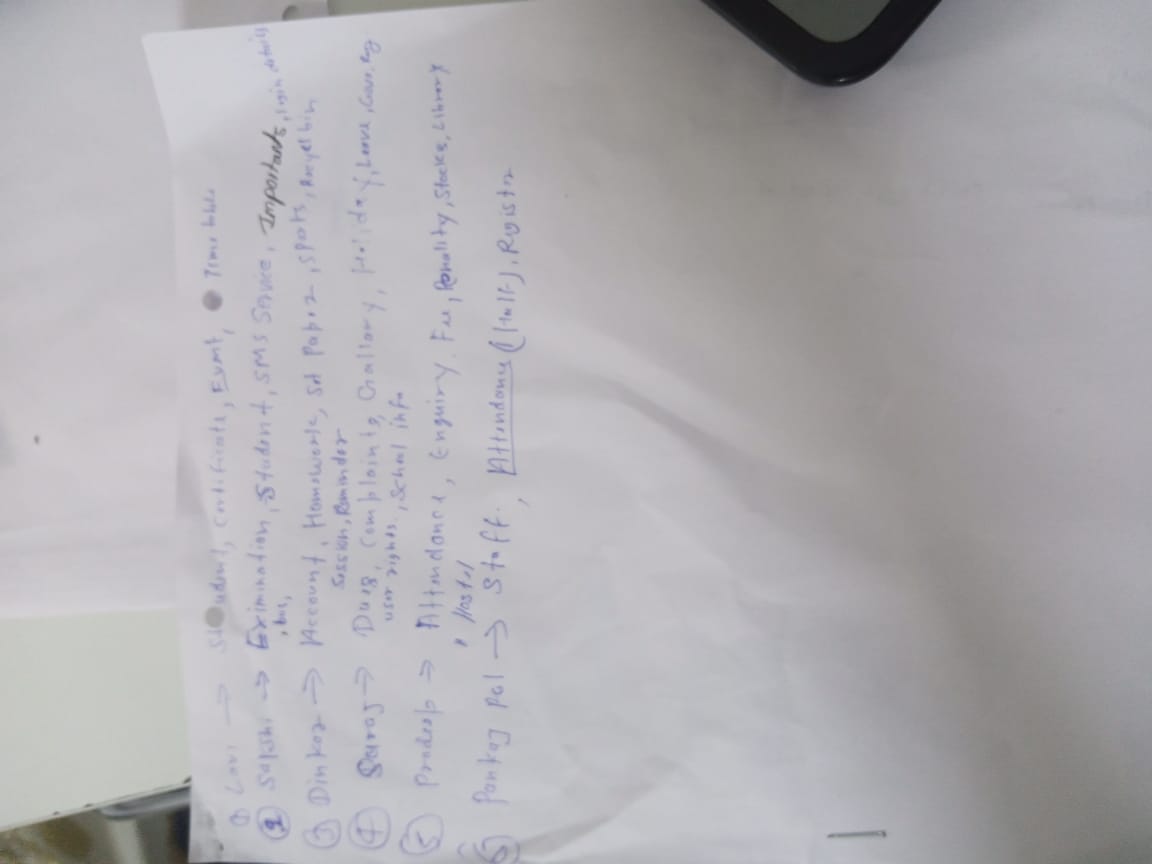 ① Lavi → Student, Certificate, Event, Time table
② Sakshi → Eximination, Student, SMS Service, Importants, login details
, bus,
③ Dinkar → Account, Homework, Set Paper, Sports, Recyel bin
Session, Reminder
④ Saroj → Dues, Complaints, Gallary, Holiday, Leave,
user rights, School info
⑤ Pradeep → Attendance, Enquiry, Fee, Penality, Stocks, Library
, Hostel
⑥ Pankaj Pal → Staff, Attendance (Staff), Register